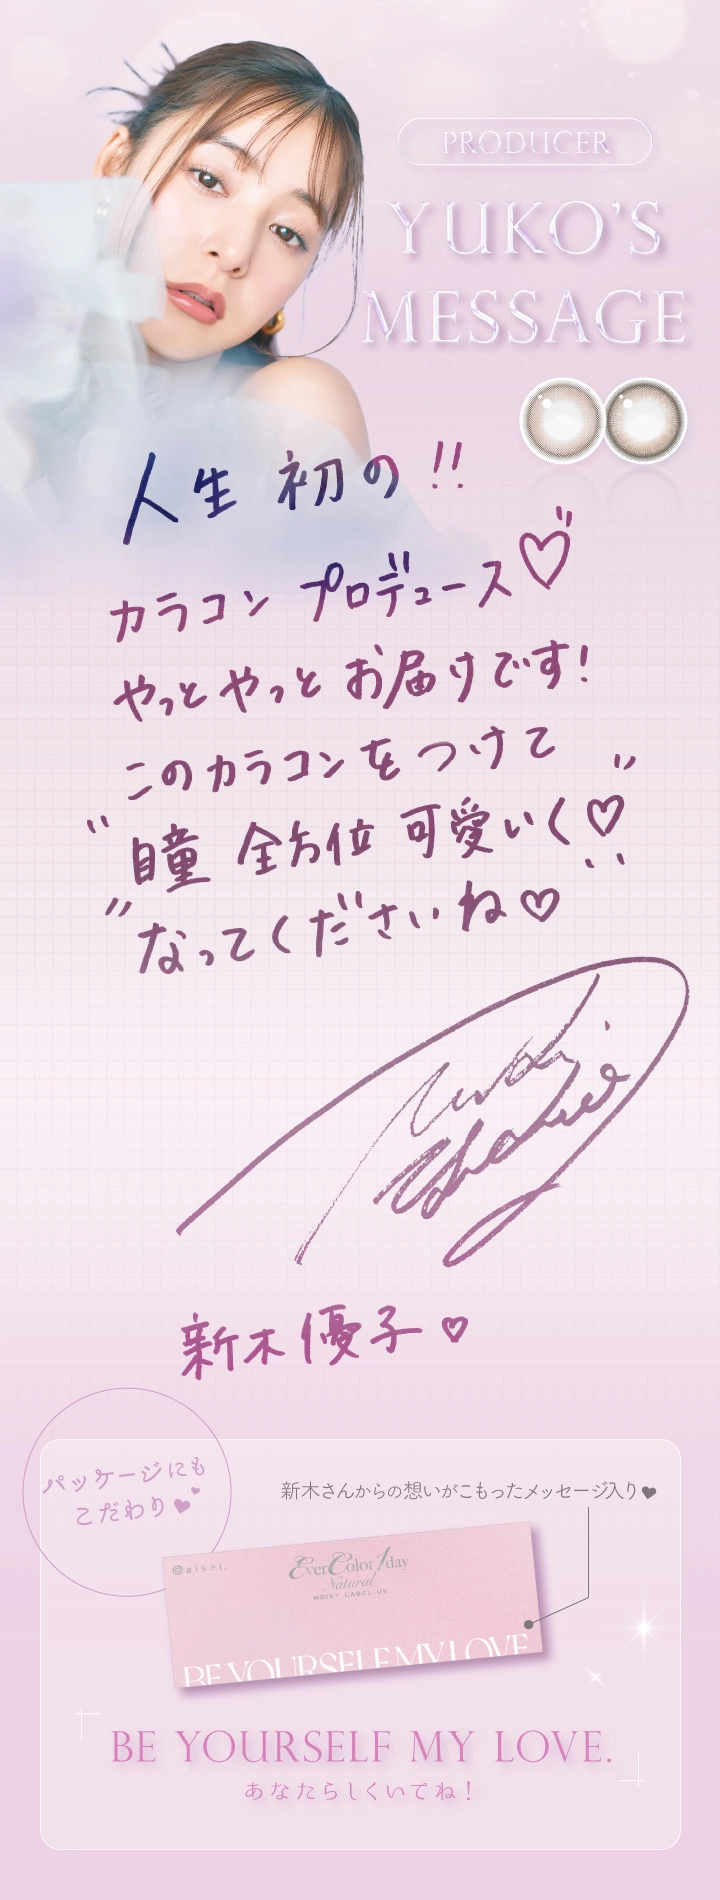 PRODUCER
YUKO'S
MESSAGE
人生 初の!!
カラコン プロデュース♡
やっとやっと お届けです!
このカラコンを つけて
瞳 全方位 可愛いく♡
なってくださいね♡
新木優子♡
パッケージにも
こだわり♥
新木さんからの想いがこもったメッセージ入り♥
@aisei.
EverColor1day
Natural
MOIST LABEL UV
BE YOURSELF MY LOVE
BE YOURSELF MY LOVE.
あなたらしくいてね!